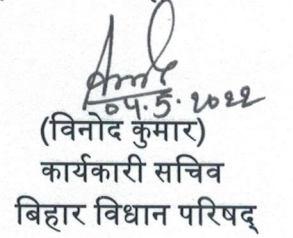 04.5.2022
(विनोद कुमार)
कार्यकारी सचिव
बिहार विधान परिषद्